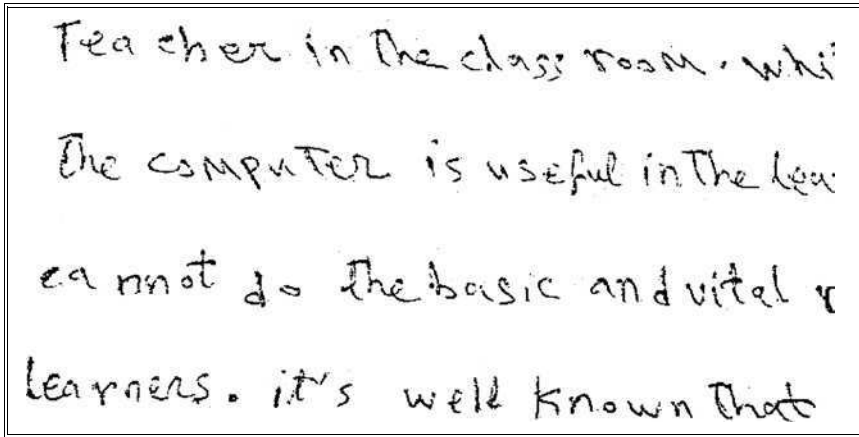 Teacher in the class room. whi
The computer is useful in the lea
cannot do the basic and vital r
learners. it's well known that